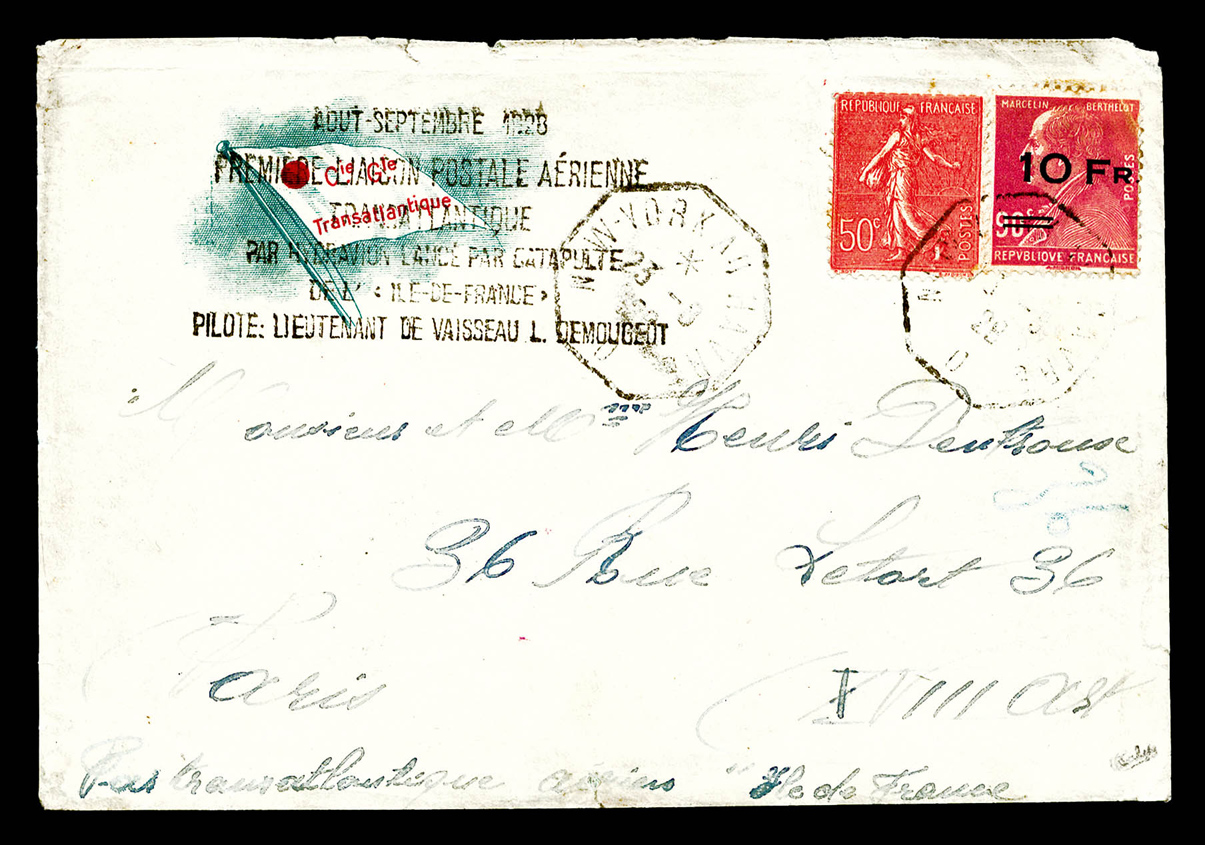 AOUT-SEPTEMBRE 1928
PREMIÈRE LIAISON POSTALE AÉRIENNE
TRANSATLANTIQUE
PAR HYDRAVION LANCÉ PAR CATAPULTE
DE L' « ILE-DE-FRANCE »
PILOTE: LIEUTENANT DE VAISSEAU L. DEMOUGEOT
Cie Gle
Transatlantique
NEW-YORK AU HAVRE
23
RÉPUBLIQUE FRANÇAISE
50c
POSTES
MARCELIN BERTHELOT
10 FR
90c
POSTES
REPVBLIQVE FRANÇAISE
Monsieur et Mme Henri
36 Rue Letort 36
Paris XVIII Art
Par transatlantique aérien "Ile de France